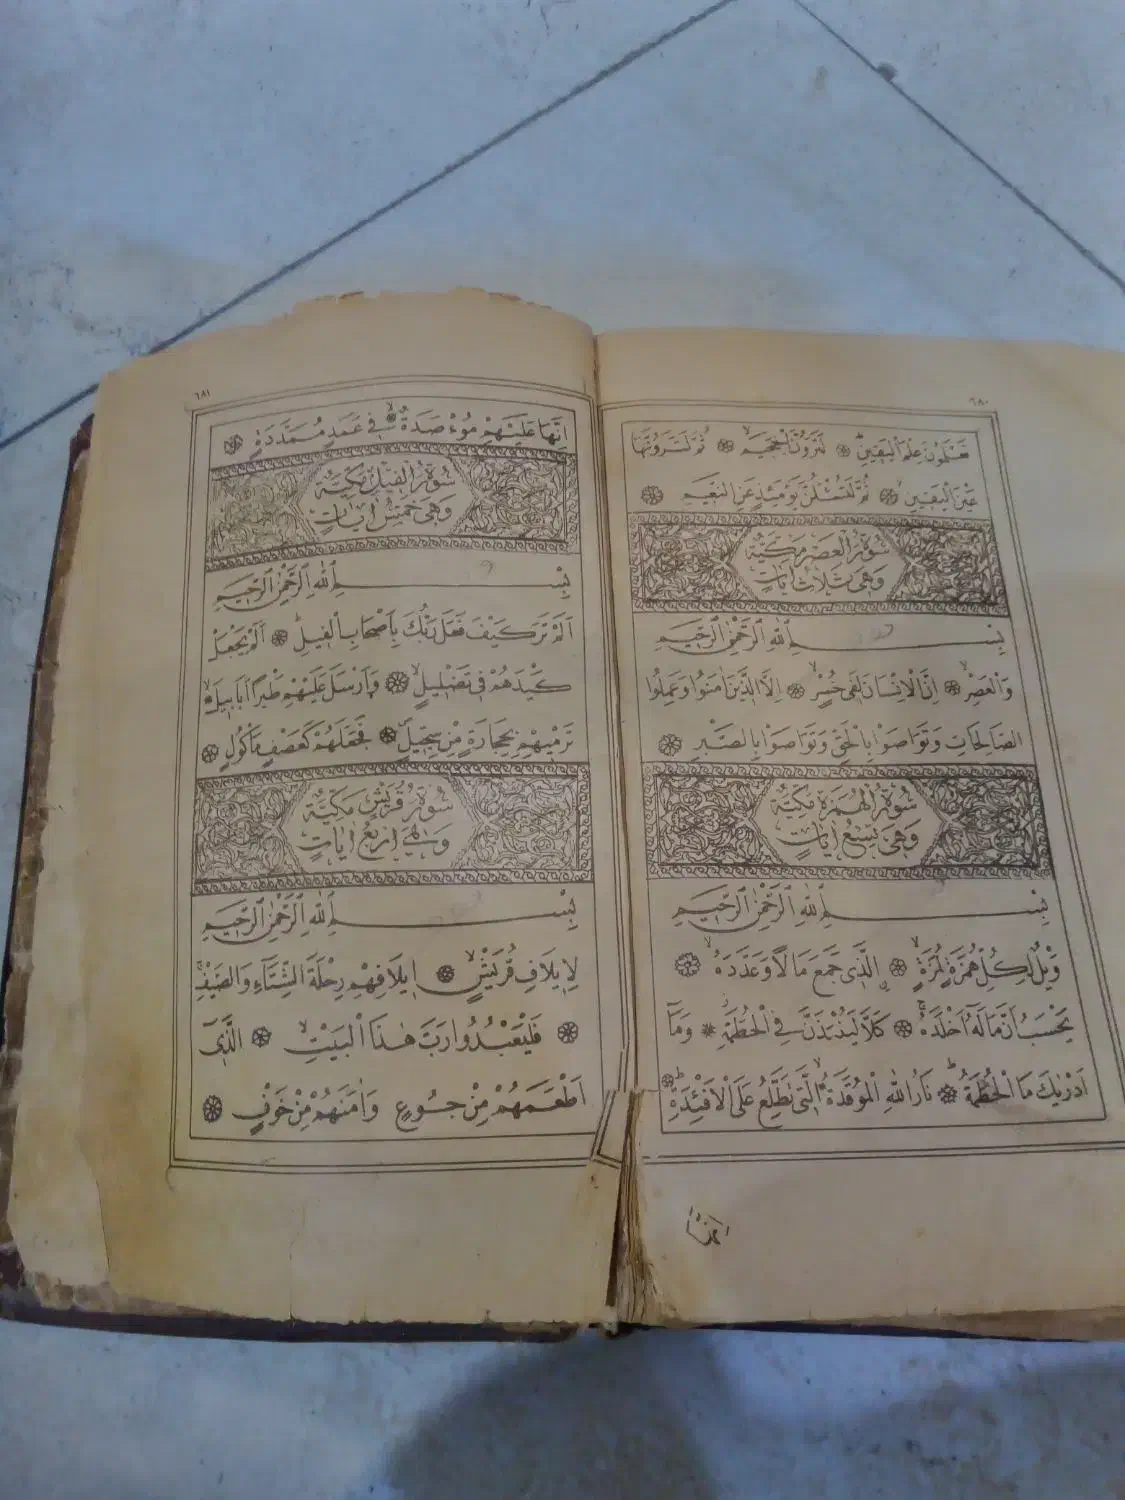 ٦٨٠
تَعْلَمُونَ عِلْمَ الْيَقِينِ ۞ لَتَرَوُنَّ الْجَحِيمَ ۞ ثُمَّ لَتَرَوُنَّهَا
عَيْنَ الْيَقِينِ ۞ ثُمَّ لَتُسْئَلُنَّ يَوْمَئِذٍ عَنِ النَّعِيمِ ۞
سُورَةُ الْعَصْرِ مَكِّيَّةٌ
وَهِيَ ثَلَاثُ اٰيَاتٍ
بِسْمِ اللّٰهِ الرَّحْمٰنِ الرَّحِيمِ
وَالْعَصْرِ ۞ اِنَّ الْاِنْسَانَ لَفِى خُسْرٍ ۞ اِلَّا الَّذِينَ اٰمَنُوا وَعَمِلُوا
الصَّالِحَاتِ وَتَوَاصَوْا بِالْحَقِّ وَتَوَاصَوْا بِالصَّبْرِ ۞
سُورَةُ الْهُمَزَةِ مَكِّيَّةٌ
وَهِيَ تِسْعُ اٰيَاتٍ
بِسْمِ اللّٰهِ الرَّحْمٰنِ الرَّحِيمِ
وَيْلٌ لِكُلِّ هُمَزَةٍ لُمَزَةٍ ۞ اَلَّذِى جَمَعَ مَالًا وَعَدَّدَهُ ۞
يَحْسَبُ اَنَّ مَالَهُ اَخْلَدَهُ ۞ كَلَّا لَيُنْبَذَنَّ فِى الْحُطَمَةِ ۞ وَمَا
اَدْرٰيكَ مَا الْحُطَمَةُ ۞ نَارُ اللّٰهِ الْمُوقَدَةُ ۞ اَلَّتِى تَطَّلِعُ عَلَى الْاَفْئِدَةِ ۞
اِنَّهَا
٦٨١
اِنَّهَا عَلَيْهِمْ مُوءْصَدَةٌ ۞ فِى عَمَدٍ مُمَدَّدَةٍ ۞
سُورَةُ الْفِيلِ مَكِّيَّةٌ
وَهِيَ خَمْسُ اٰيَاتٍ
بِسْمِ اللّٰهِ الرَّحْمٰنِ الرَّحِيمِ
اَلَمْ تَرَ كَيْفَ فَعَلَ رَبُّكَ بِاَصْحَابِ الْفِيلِ ۞ اَلَمْ يَجْعَلْ
كَيْدَهُمْ فِى تَضْلِيلٍ ۞ وَاَرْسَلَ عَلَيْهِمْ طَيْرًا اَبَابِيلَ ۞
تَرْمِيهِمْ بِحِجَارَةٍ مِنْ سِجِّيلٍ ۞ فَجَعَلَهُمْ كَعَصْفٍ مَأْكُولٍ ۞
سُورَةُ قُرَيْشٍ مَكِّيَّةٌ
وَهِيَ اَرْبَعُ اٰيَاتٍ
بِسْمِ اللّٰهِ الرَّحْمٰنِ الرَّحِيمِ
لِاِيلَافِ قُرَيْشٍ ۞ اِيلَافِهِمْ رِحْلَةَ الشِّتَاءِ وَالصَّيْفِ
۞ فَلْيَعْبُدُوا رَبَّ هٰذَا الْبَيْتِ ۞ اَلَّذِى
اَطْعَمَهُمْ مِنْ جُوعٍ وَاٰمَنَهُمْ مِنْ خَوْفٍ ۞